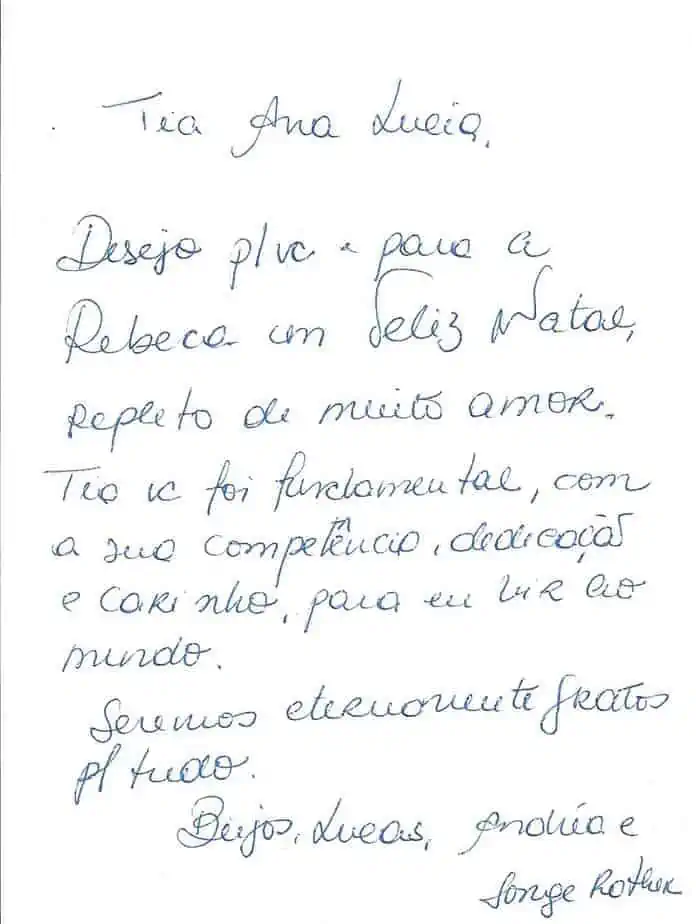 Tia Ana Lucia,
Desejo p/ vc e para a
Rebeca um Feliz Natal,
repleto de muito amor.
Tia vc foi fundamental, com
a sua competência, dedicação
e carinho, para eu vir ao
mundo.
Seremos eternamente gratos
p/ tudo.
Beijos, Lucas, Andréa e
Jorge Rother